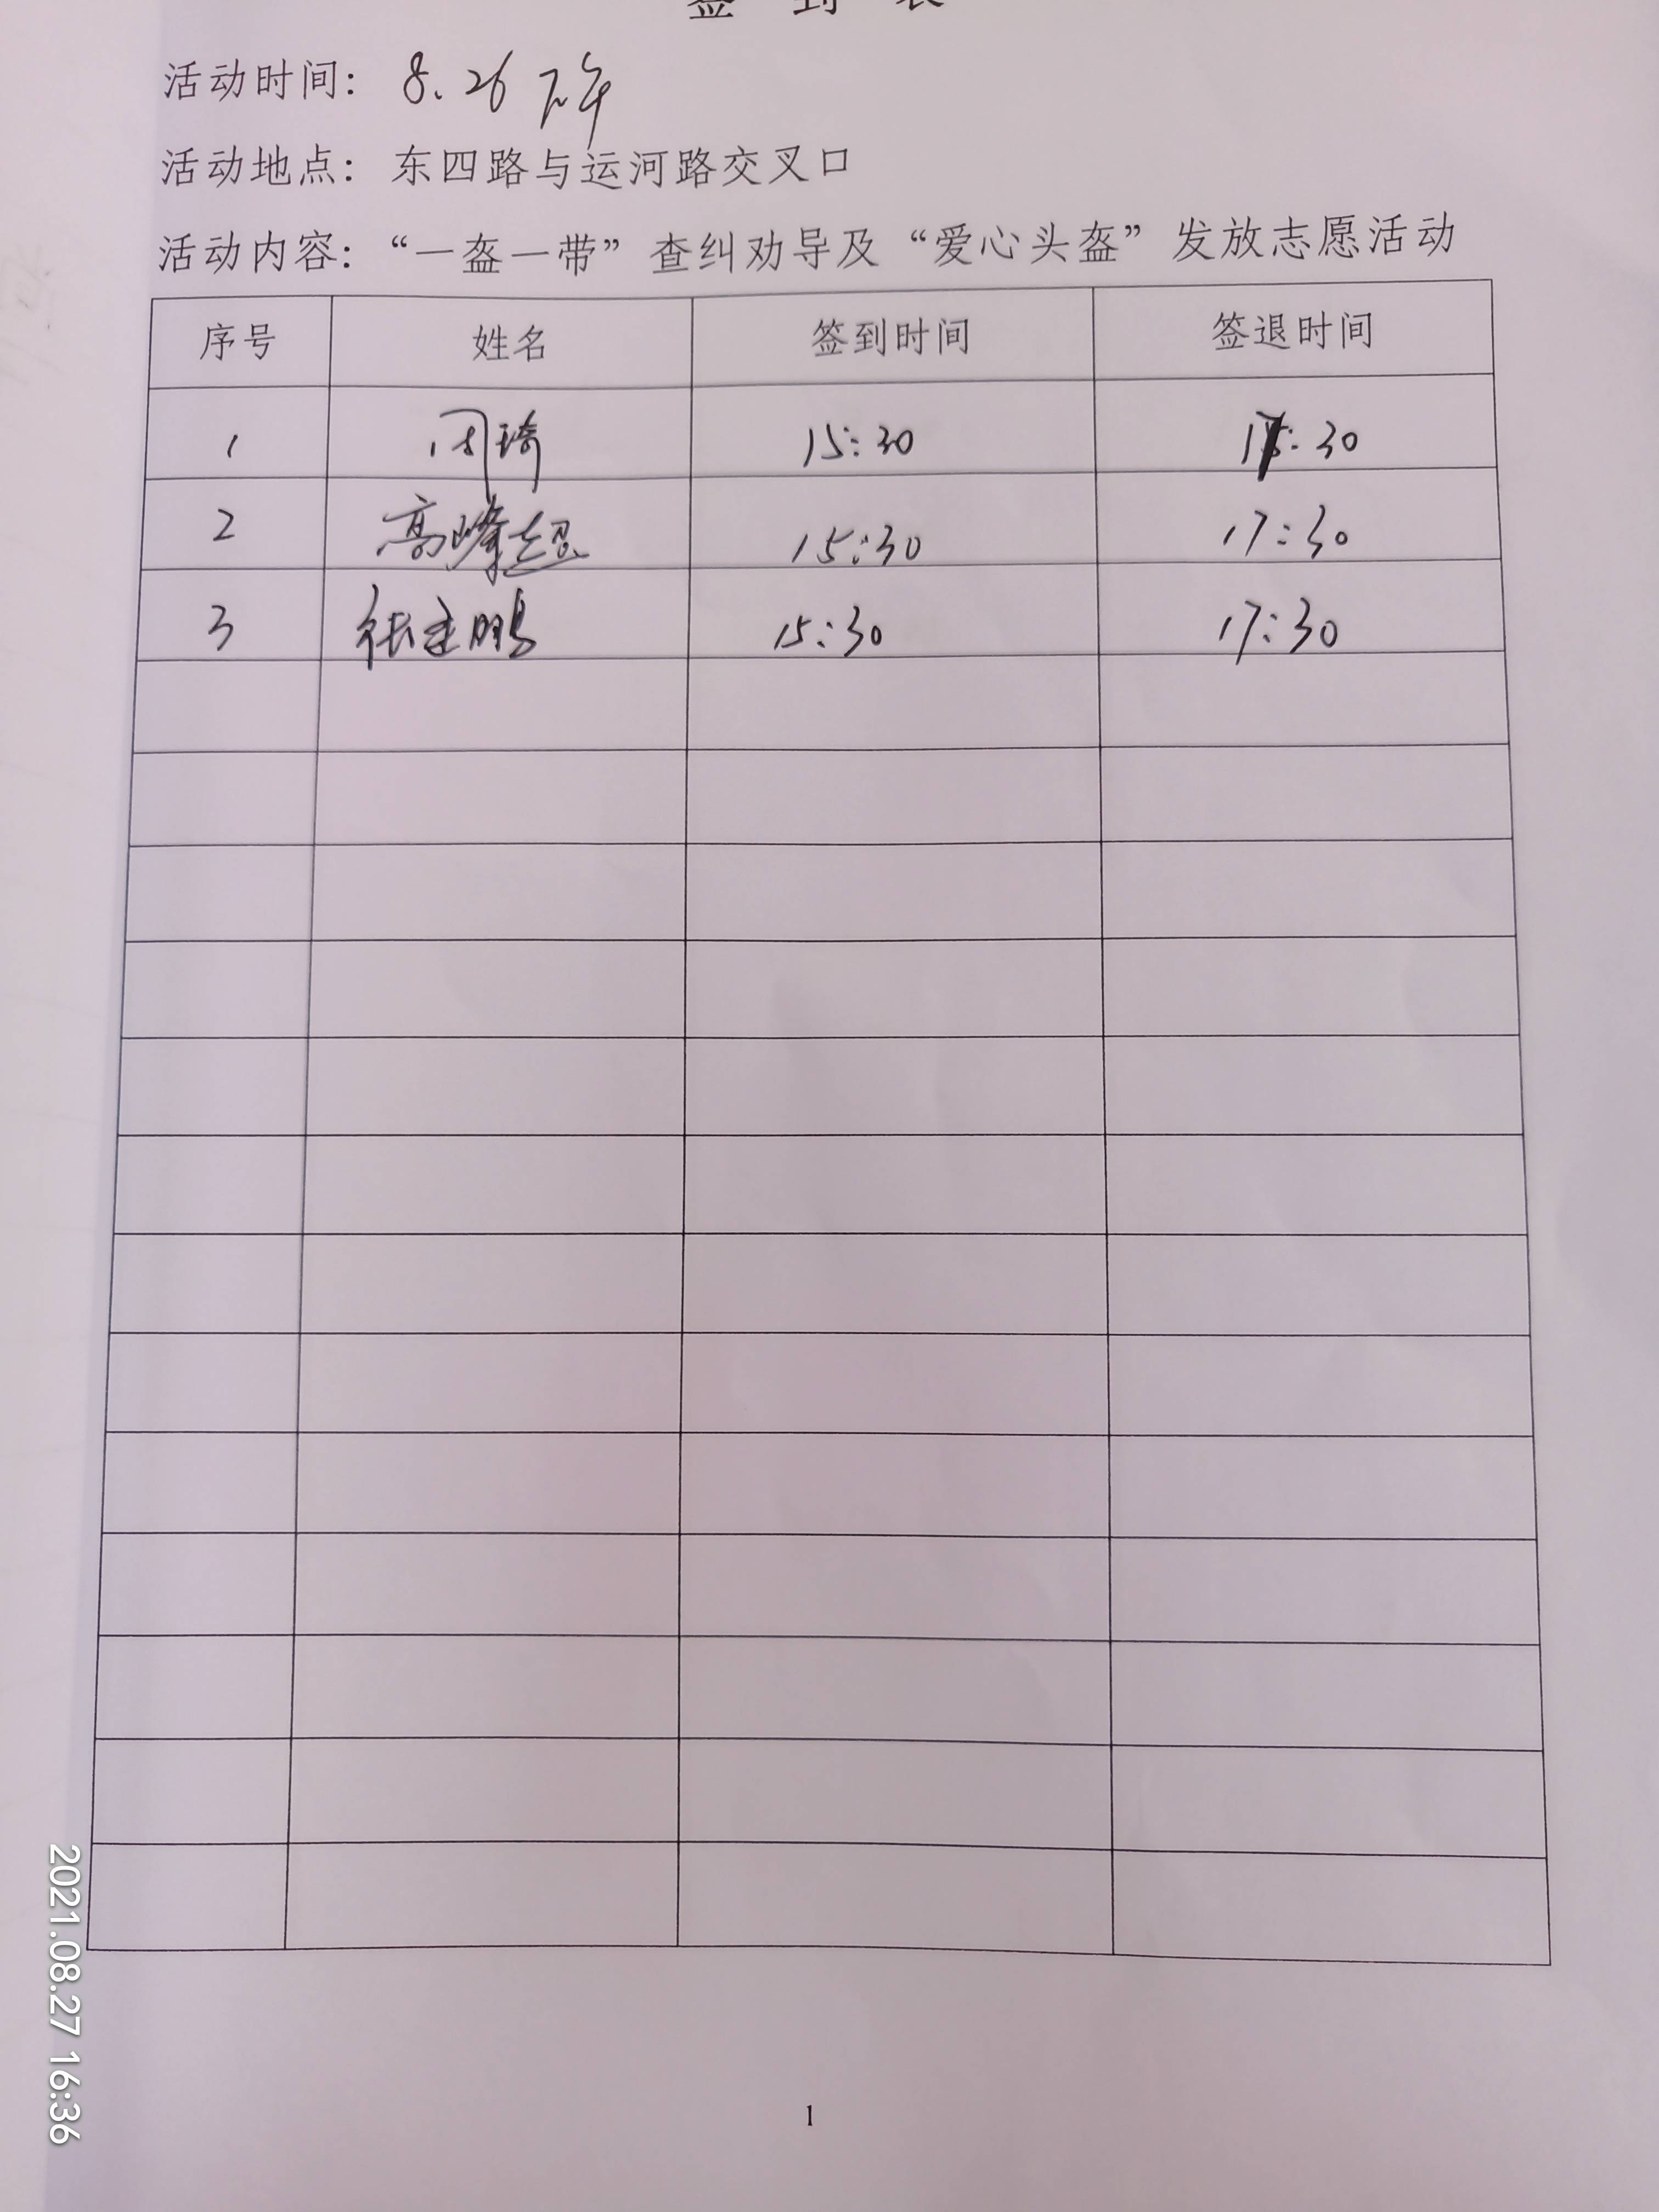 签 到 表
活动时间： 8.26 下午
活动地点： 东四路与运河路交叉口
活动内容：“一盔一带”查纠劝导及“爱心头盔”发放志愿活动
序号 姓名 签到时间 签退时间
1 周琦 15:30 17:30
2 高峰超 15:30 17:30
3 张建鹏 15:30 17:30
1
2021.08.27 16:36